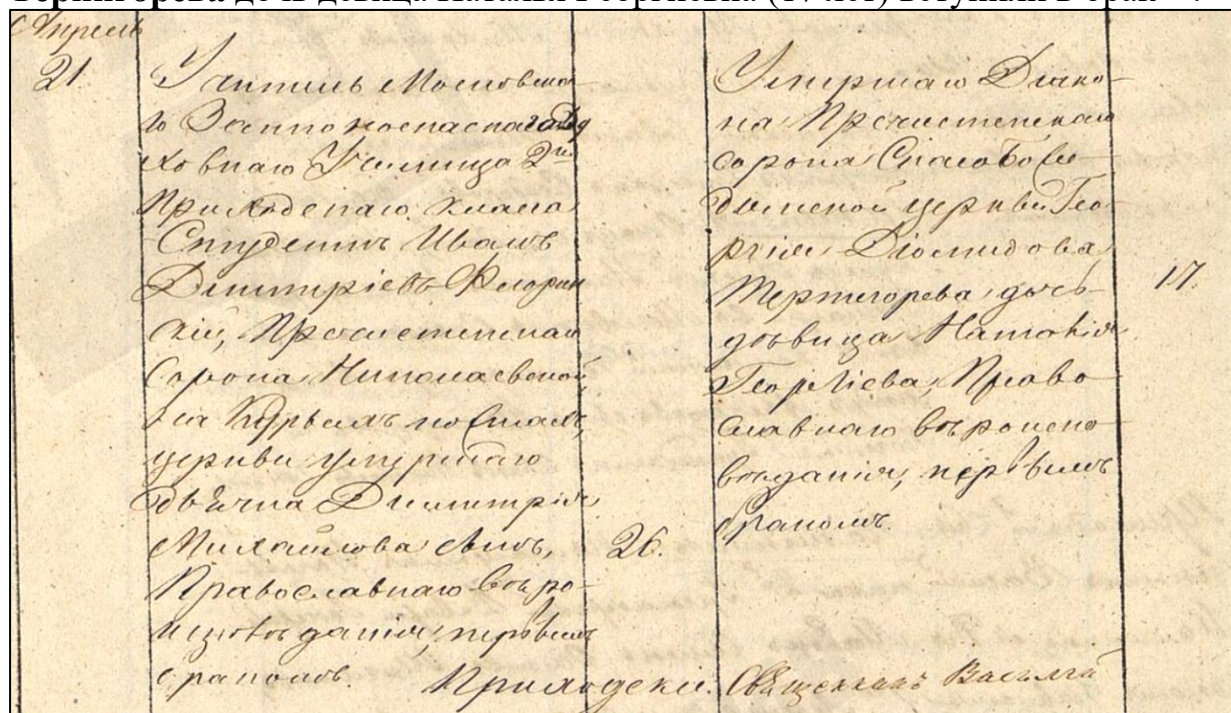 Терпигорева дочь девица Наталья Георгиевна (17 лет) вступили в брак
Апрель
21.
Учитель Московска-
го Заиконоспаскаго Ду
ховнаго Училища 2го
Приходскаго класса
Студентъ Иванъ
Димитріевъ Флорин
скій, Пречистенскаго
Сорока Николаевской
церкви умершаго
дьячка Димитрія
Михайлова сынъ,
Православнаго вѣро-
исповѣданія, первымъ
бракомъ.
26.
Умершаго Діако-
на Пречистенскаго
сорока Спасобожe-
домской церкви Гео-
ргія Діомидова
Терпигорева дочь
дѣвица Наталія
Георгіева Право
славнаго вѣроиспо
вѣданія, первымъ
бракомъ.
17.
Приходскій Священникъ Василій